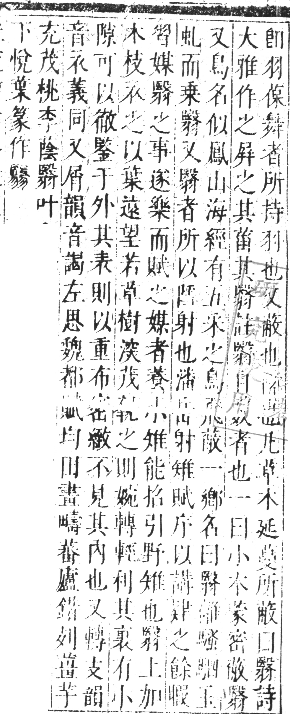 卽羽葆舞者所持羽也又蔽也障也凡草木延蔓所蔽曰翳詩
大雅作之屛之其菑其翳註翳自斃者也一曰小木蒙密蔽翳
又鳥名似鳳山海經有五采之鳥飛蔽一鄕名曰翳離騷駟玉
虬而乗翳又翳者所以匿射也潘岳射雉賦序以講肄之餘暇
習媒翳之事遂樂而賦之媒者養小雉能招引野雉也翳上加
木枝衣之以葉遠望若草樹深茂就之則婉轉輕利其裏有小
隙可以徹鑒于外其表則以重布密緻不見其內也又轉支韻
音衣義同又屑韻音謁左思魏都賦均田畫疇蕃廬錯列薑芋
充茂桃李蔭翳叶
下悅葉篆作翳